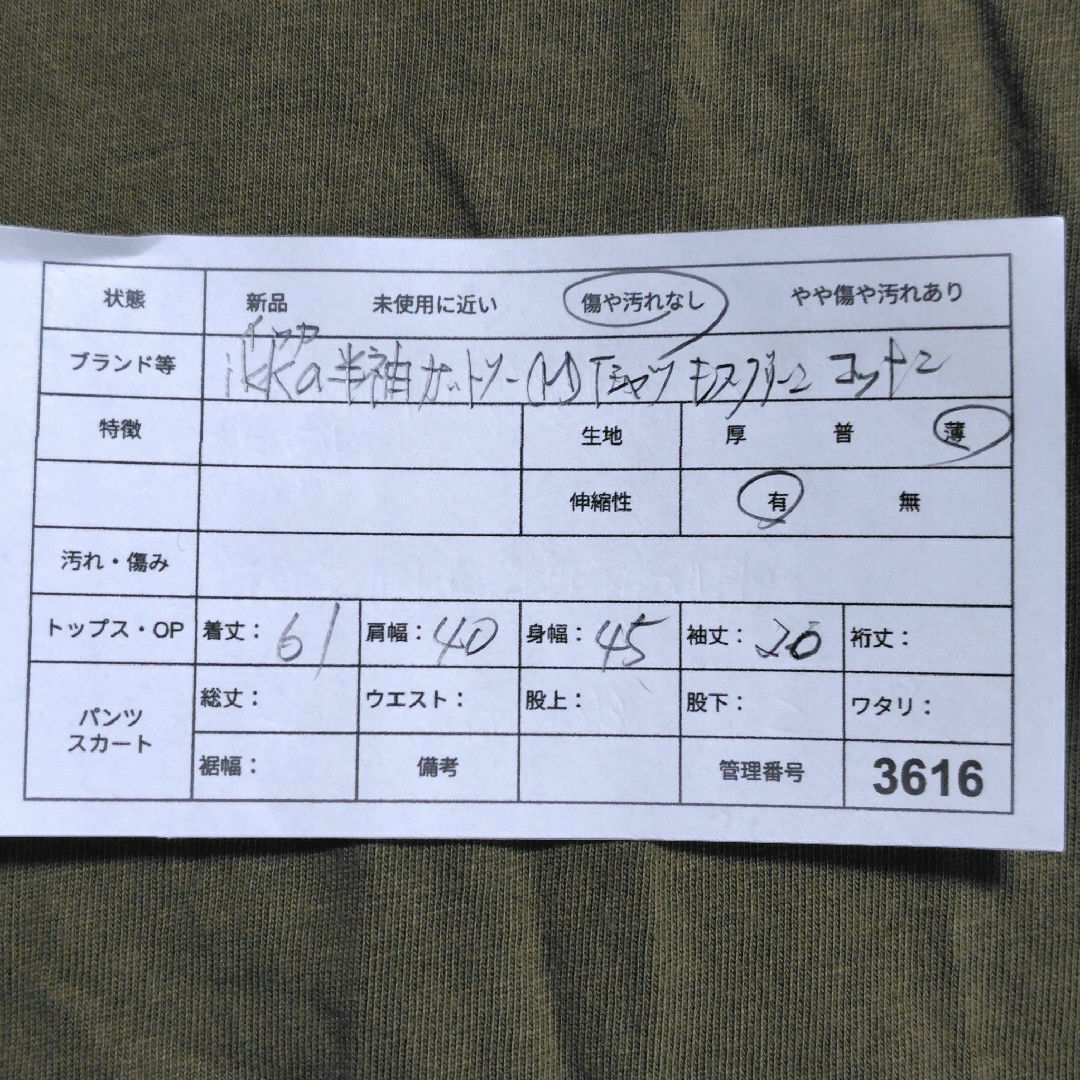 状態 新品 未使用に近い 傷や汚れなし やや傷や汚れあり
イッカ
ブランド等 ikka 半袖カットソー (M) Tシャツ モスグリーン コットン
特徴 生地 厚 普 薄
伸縮性 有 無
汚れ・傷み
トップス・OP 着丈: 61 肩幅: 40 身幅: 45 袖丈: 20 裄丈:
パンツ 総丈: ウエスト: 股上: 股下: ワタリ:
スカート
裾幅: 備考 管理番号 3616